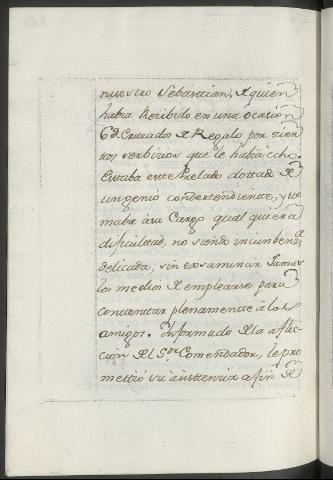 nuestro Sebastian, de quien
habia Recibido en una ocasion
6d. Cruzados de Regalo por zier
tos serbizios que le habia echo.
Estaba este Prelado dottado de
un genio condescendiente, y to
maba à su Cargo qual quiera
dificulttad, no siendo incunbenzª
delicada, sin exsaminar Jamas
los medios de emplearse para
contenttar plenamente à los
amigos. Informado de la aflic
cion del S.ᵒʳ Comendador, le pro
mettiò su asistencia a fin de